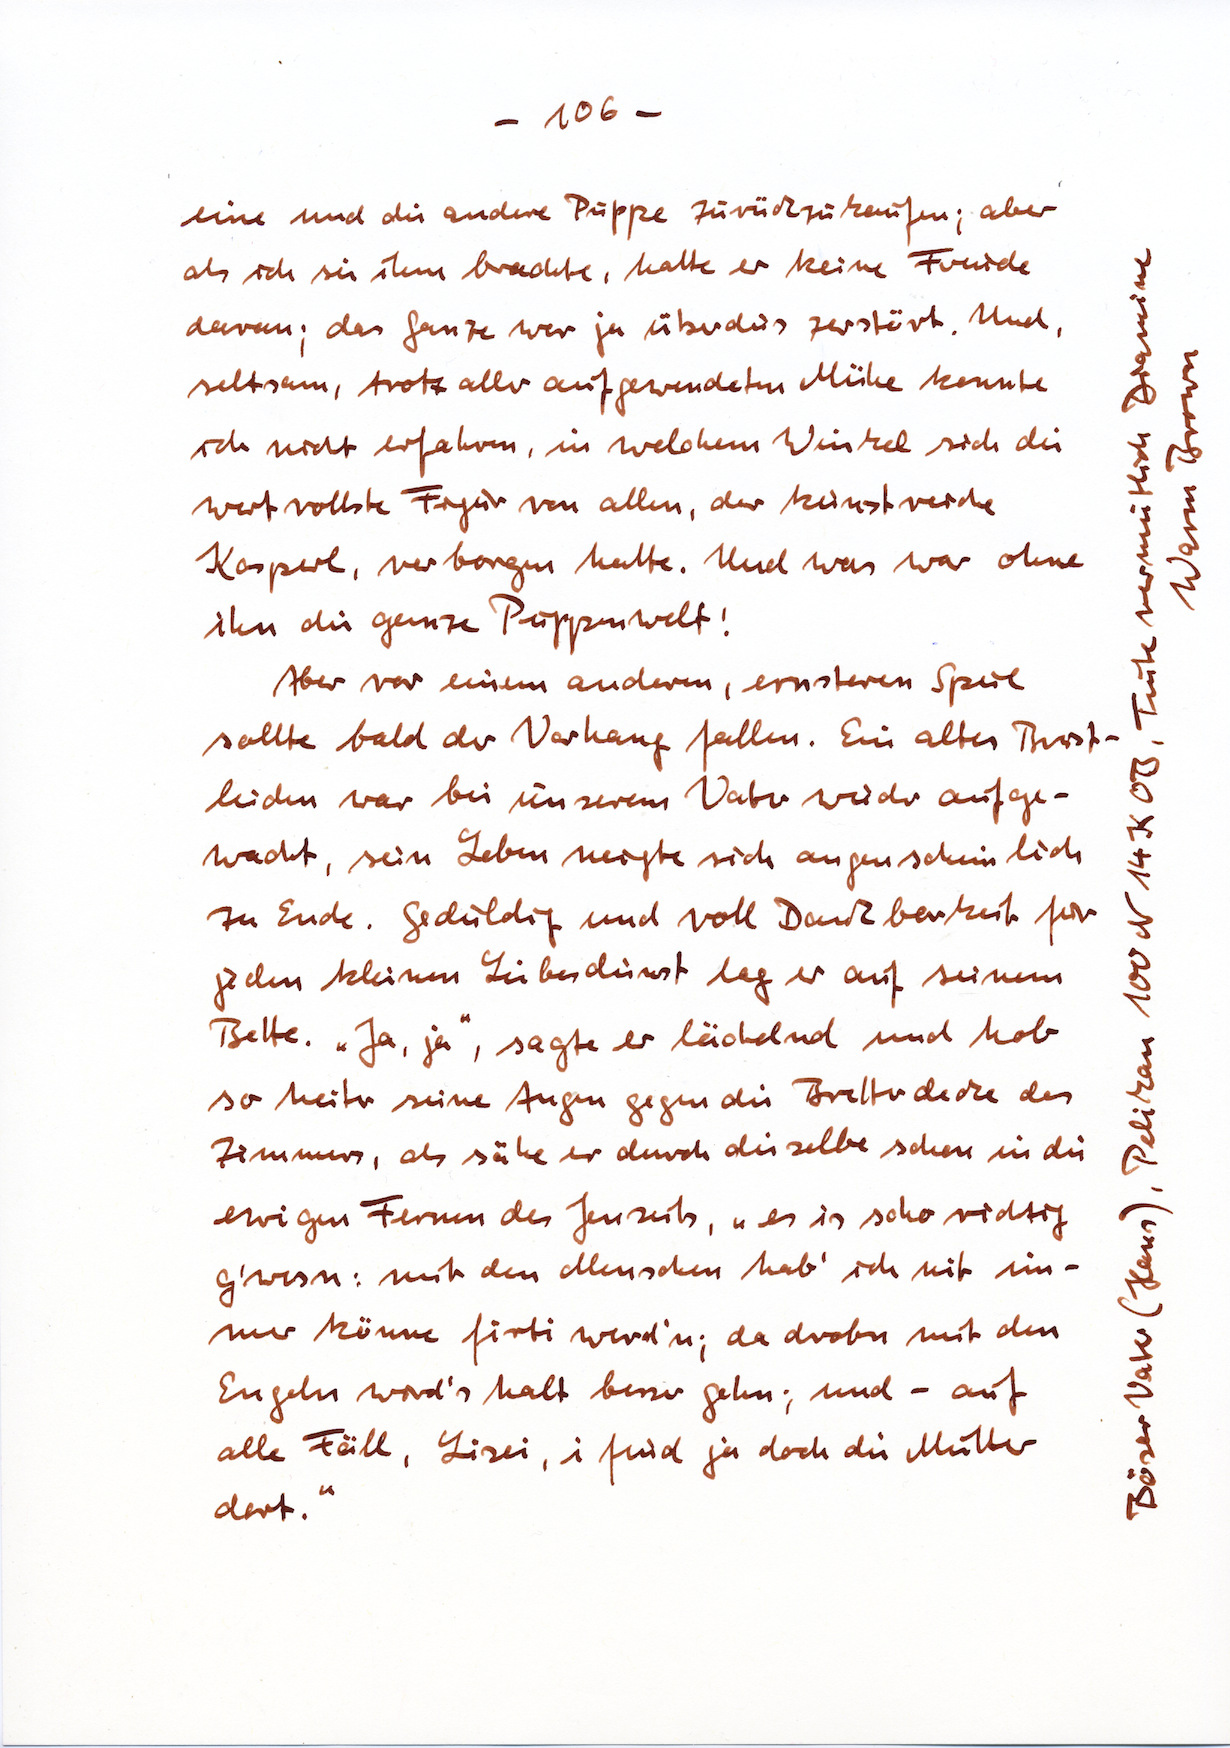 - 106 -
eine und die andere Puppe zurückzukaufen; aber
als ich sie ihm brachte, hatte er keine Freude
daran; das Ganze war ja überdies zerstört. Und,
seltsam, trotz aller aufgewendeten Mühe konnte
ich nicht erfahren, in welchem Winkel sich die
wertvollste Figur von allen, der kunstreiche
Kasperl, verborgen halte. Und was war ohne
ihn die ganze Puppenwelt!
Aber vor einem anderen, ernsteren Spiel
sollte bald der Vorhang fallen. Ein altes Brust-
leiden war bei unserem Vater wieder aufge-
wacht, sein Leben neigte sich augenscheinlich
zu Ende. Geduldig und voll Dankbarkeit für
jeden kleinen Liebesdienst lag er auf seinem
Bette. „Ja, ja“, sagte er lächelnd und hob
so heiter seine Augen gegen die Bretterdecke des
Zimmers, als sähe er durch dieselbe schon in die
ewigen Fernen des Jenseits, „es is scho richtig
g'wesn: mit den Menschen hab' ich nit im-
mer könne firti werd'n; da drobn mit den
Engeln wird's halt besser gehn; und - auf
alle Fäll, Lisei, i find ja doch die Mutter
dort.“
Böser Vater (Hans), Pelikan 100 N 14 K OB, Tinte vermutlich Diamine
Warm Brown